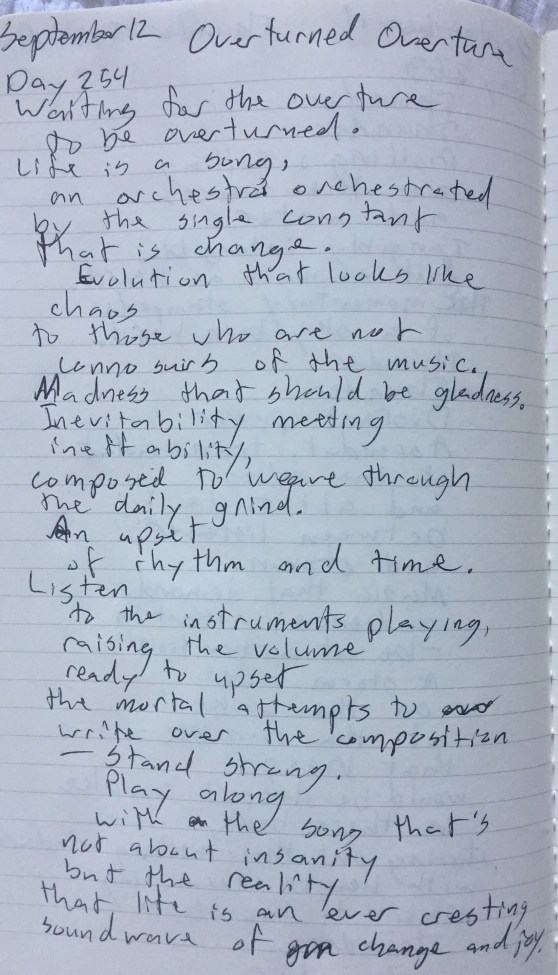 September 12 Overturned Overture
Day 254
Waiting for the overture
to be overturned.
Life is a song,
an orchestra orchestrated
by the single constant
that is change.
Evolution that looks like
chaos
to those who are not
connosuirs of the music.
Madness that should be gladness.
Inevitability meeting
ineffability,
composed to weave through
the daily grind.
An upset
of rhythm and time.
Listen
to the instruments playing,
raising the volume
ready to upset
the mortal attempts to
write over the composition
— Stand strong.
Play along
with the song that's
not about insanity
but the reality
that life is an ever cresting
soundwave of change and joy.